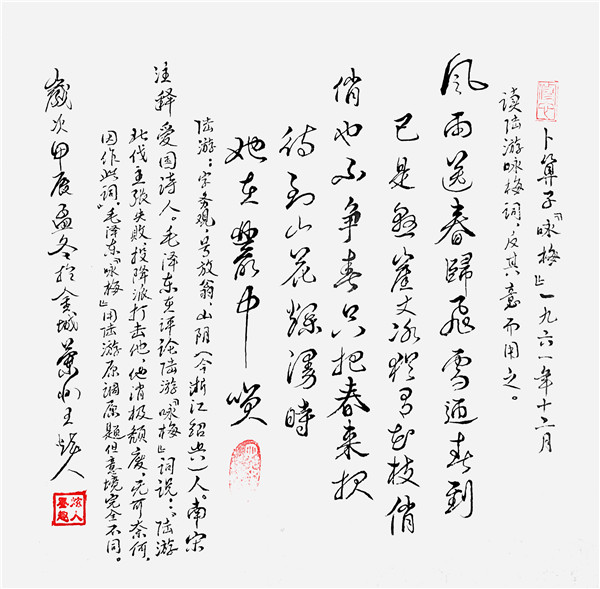 卜算子『咏梅』一九六一年十二月
读陆游咏梅词，反其意而用之。
风雨送春歸飛雪迎春到
已是悬崖丈冰猶有花枝俏
俏也不争春只把春来报
待到山花爛漫時
她在叢中笑
陆游：字务观，号放翁，山阴（今浙江绍兴）人。南宋
注释 爱国诗人。毛泽东在评论陆游『咏梅』词说：陆游
北伐主张失败，投降派打击他，他消极颓废，无可奈何，
因作此词。毛泽东『咏梅』用陆游原调原题但意境完全不同。
歲次甲辰孟冬於金城蘭州王炫人
炫人墨趣